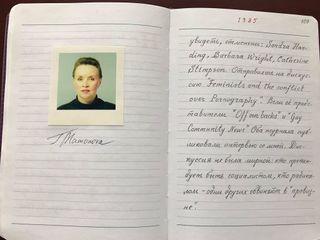 1985
109
T. Mamonova
увидеть, отменены: Sandra Har-
ding, Barbara Wright, Catharine
Stimpson. Отправилась на дискус-
сию "Feminists and the conflict
over Pornography". Были её пред-
ставители "Off our backs" и "Gay
Community News". Оба журнала пуб-
ликовали интервью со мной. Дис-
куссия не была мирной: кто претен-
дует быть социалистом, кто радика-
лом - одни других обвиняют в "прови-
не".